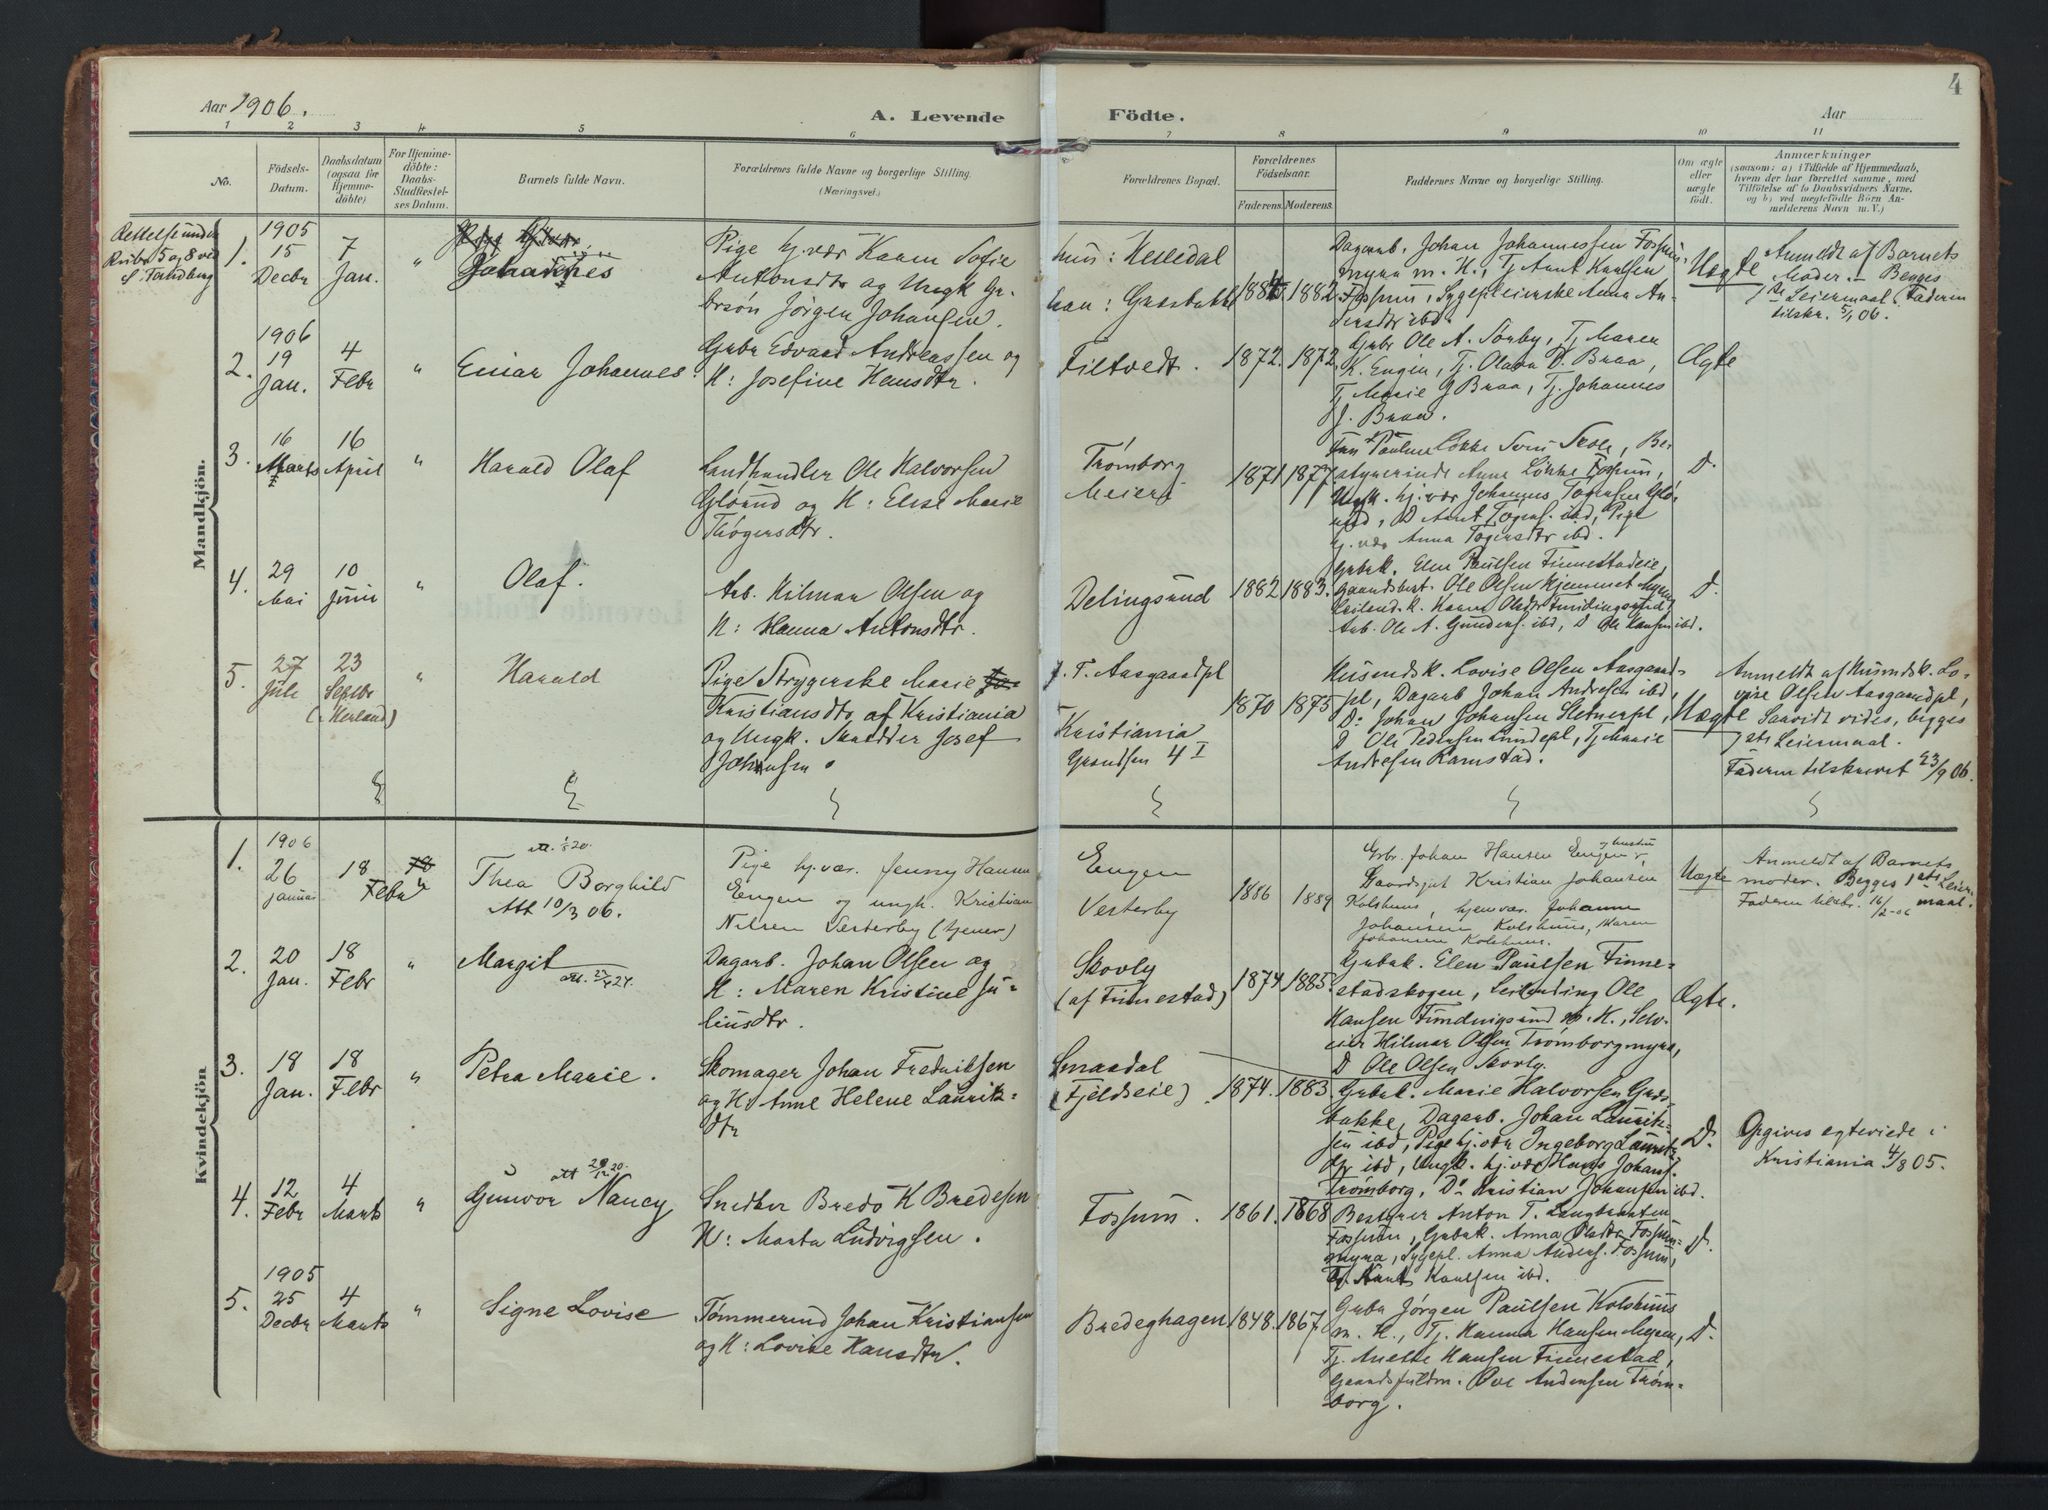 Aar 1906.
A. Levende Födte.
Aar
4
1 2 3 4 5 6 7 8 9 10 11
No.
Födsels-
Datum.
Daabsdatum
(ogsaa for
Hjemme-
döbte)
For Hjemme-
döbte:
Daabs-
Stadfæstel-
ses Datum.
Barnets fulde Navn.
Forældrenes fulde Navne og borgerlige Stilling.
(Næringsvei.)
Forældrenes Bopæl.
Forældrenes
Födselsaar.
Faderens. Moderens.
Faddernes Navne og borgerlige Stilling.
Om ægte
eller
uægte
födt.
Anmærkninger
(saasom: a) i Tilfælde af Hjemmedaab,
hvem der har forrettet samme, med
Tilföielse af to Daabsvidners Navne.
og b) ved uægtefödte Börn An-
melderens Navn m. V.)
Mandkjön.
Rettelse under
Rubr 5 og 8 ved
S. Tandberg
1.
1905
15
Decbr
7
Jan.
"
Johannes
Pige hj.vær Karen Sofie
Antonsdtr og Ungk Gr.
brsøn Jørgen Johansen.
hun: Helledal
han: Gassbakke
1884 1882
Dagarb. Johan Johannessen Fossum-
myra m. H., Tj Amt Karlsen
Fossum, Sygepleierske Anna An-
dersdtr ibd
Uægte
Anmeldt af Barnets
Moder. - Begges
1ste Leiermaal. Faderen
tilskr. 5/1 06.
2.
1906
19
Jan.
4
Febr
"
Einar Johannes.
Grbr Edvard Andreassen og
H: Josefine Hansdtr.
Fittvedt.
1872. 1872.
Grbr Ole A. Sørby, Tj Maren
K. Engen, Tj. Olava D. Braa,
Tj Marie J Braa, Tj. Johannes
J. Braa.
Ægte
3.
16
Marts
16
April
"
Harald Olaf
Landhandler Ole Halvorsen
Glörud og H: Elise Marie
Thøgersdtr.
Trömborg
Meieri
1871 1877
Pauline Løkke Skole, Be-
styrerinde Anne Løkke Fossum,
Ungk. hj.vær Johannes Tøgersen Glö-
rud, D Amt Tøgers. ibd, Pige
hj.vær Anna Tøgersdtr ibd.
D.
4.
29
Mai
10
Juni
"
Olaf.
Arb. Hilmar Olsen og
H: Hanna Antonsdtr.
Delingsrud
1882 1883.
Grbrk. Elen Paulsen Finnestadeie,
Gaardsbest. Ole Olsen Hjemmet
Leiland. k. Karen Olsdtr Fundingsrud
Arb. Ole A. Gunders. ibd, D Ole Hansen ibd.
D.
5.
27
Juli
23
Septbr
(i Herland)
"
Harald
Pige Strygerske Marie
Kristiansdtr af Kristiania
og Ungk. Skrædder Josef
Johansen.
f. T. Aasgaardpl
Kristiania
Grandsen 4 I
1870 1875
Husmdsk. Lovise Olsen Aasgaard-
pl, Dagarb Johan Andresen ibd,
Do Johan Johansen Sletnerpl,
D Ole Pedersen Lundepl, Tj Marie
Andresen Ramstad.
Uægte
Anmeldt af Husmdsk. Lo-
vise Olsen Aasgaardpl,
Saavidt vides, begges
1ste Leiermaal.
Faderen tilskrevet 23/9 06.
Kvindekjön
1.
1906
26
januar
18
Febr
"
att. 1/5 20.
Thea Borghild
Att 10/3 06.
Pige hj.vær. Jenny Hanna
Engen og ungk. Kristian
Nilsen Vesterby (tjener)
Engen
Vesterby
1886 1889
Grbr. Johan Hansen Engen og hustru,
Gaardsgut Kristian Johansen
Kolshuus, hjemvær. Johanne
Johansen Kolshuus, Maren
Johansen Kolshuus.
Uægte
Anmeldt af Barnets
moder. Begges 1ste Leier-
maal.
Faderen tilskr. 16/2-06
2.
20
Jan.
18
Febr
"
Margit
Dagarb. Johan Olsen og
H: Maren Kristine Ju-
liusdtr.
Skovly
(af Finnestad)
1874 1885.
Grbrk. Elen Paulsen Finne-
stadskogen, Leilending Ole
Hansen Fundingsrud m. H., Selv-
eier Hilmar Olsen Trömborgmyra,
D Ole Olsen Skovly.
Ægte.
3.
18
Jan.
18
Febr
"
Petra Marie.
Skomager Johan Fredriksen
og H: Anne Helene Laurits-
dtr
Smaadal
(Fjeldseie)
1874. 1883.
Grbrk. Marie Halvorsen Gras-
bakke, Dagarb. Johan Laurit-
sen ibd, Pige hj.vær Ingeborg Laurits
dtr ibd, Ungk. hj.vær Hans Johans.
Trömborg, Do Kristian Johansen ibd.
D.
Opgives egteviede i
Kristiania 4/8 05.
4.
12
Febr
4
Marts
"
Gunvor Nancy
Snedker Bredo K Bredesen
H: Marta Ludvigsen.
Fossum.
1861. 1868
Bestyrer Anton T. Langbraaten
Fossum, Grbrk. Anna Olsdtr Fossum-
myra, Sygepl. Anna Anders. Fossum,
Tj. Amt Karlsen ibd.
D.
5.
1905
25
Decbr
4
Marts
"
Signe Lovise
Tømmermd Johan Kristiansen
og H: Lovise Hansdtr.
Bredeghagen
1848. 1867
Grbr Jørgen Paulsen Kolshuus
m. H., Tj. Hanna Hansen Moen,
Tj. Anette Hansen Finnestad,
Gaardsfuldm. Ove Andersen Tröm-
borg.
D.